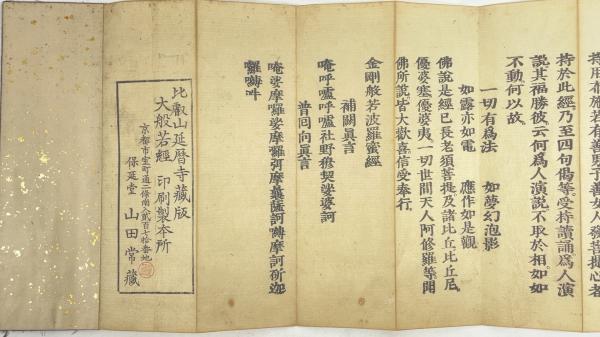 持用布施若有善男子善女人發菩提心者
持於此經乃至四句偈等受持讀誦爲人演
說其福勝彼云何爲人演說不取於相如如
不動何以故
一切有爲法　如夢幻泡影
如露亦如電　應作如是觀
佛說是經已長老須菩提及諸比丘比丘尼
優婆塞優婆夷一切世間天人阿修羅等聞
佛所說皆大歡喜信受奉行
金剛般若波羅蜜經
補闕眞言
唵呼嚧呼嚧社野穆契娑婆訶
普回向眞言
唵娑摩囉娑摩囉弭摩曩薩訶嚩摩訶斫迦
囉嚩吽
比叡山延暦寺藏版
大般若經　印刷製本所
京都市室町通二條南入貳百七拾番地
保延堂　山田常藏